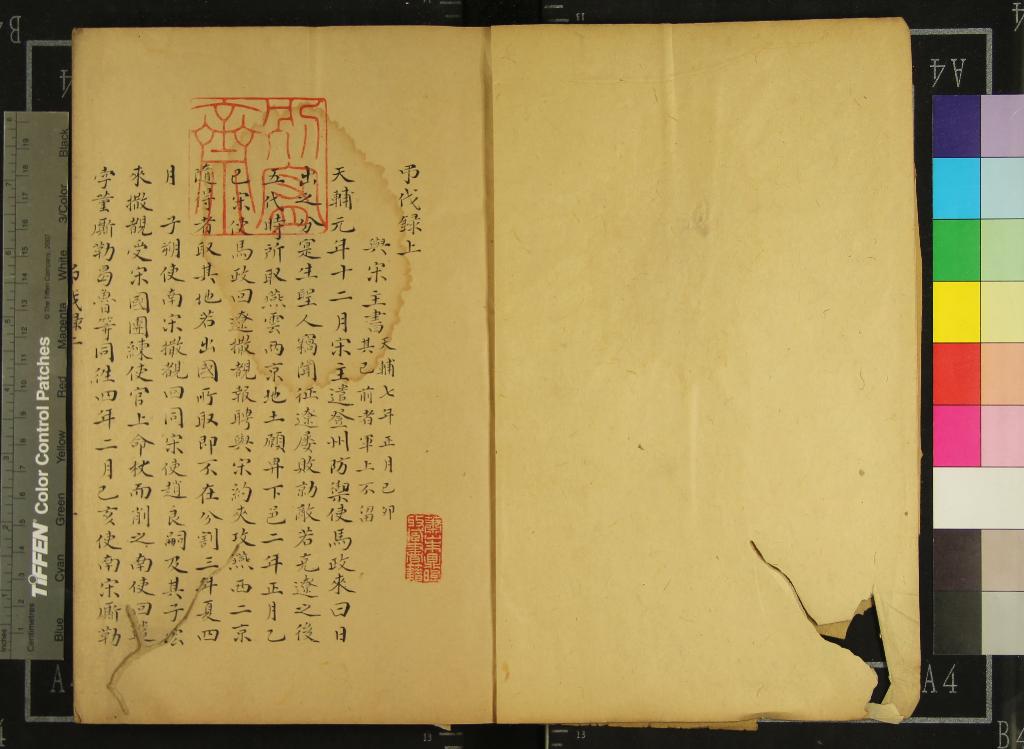 弔伐録上
與宋主書 天輔七年正月己卯
其已前者軍上不留
天輔元年十二月宋主遣登州防禦使馬政來曰日
出之分寔生聖人竊聞征遼屡敗勍敵若克遼之後
五代時所取燕雲两京地土願畀下邑二年正月乙
已宋使馬政回遼撒覩報聘與宋約夾攻燕西二京
隨得者取其地若出國所取即不在分割三年夏四
月 子朔使南宋撒覩回同宋使趙良嗣及其子宏
來撒覩受宋國團練使官上命杖而削之南使回遣
孛菫厮勒曷魯等同徃四年二月乙亥使南宋厮勒
TIFFEN Color Control Patches
© The Tiffen Company, 2007
Inches
Centimetres
Blue
Cyan
Green
Yellow
Red
Magenta
White
3/Color
Black
A4
A4
A4
13
13